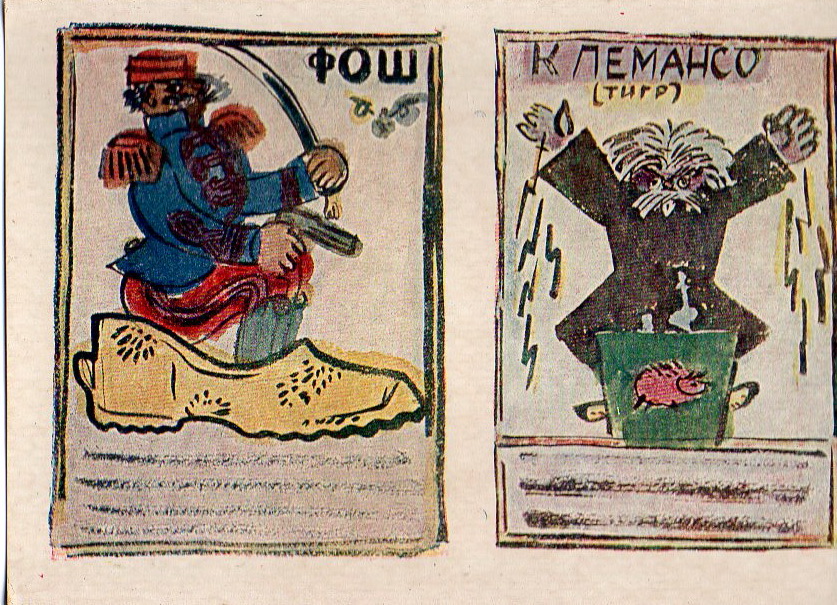 ФОШ
КЛЕМАНСО
(ТИГР)